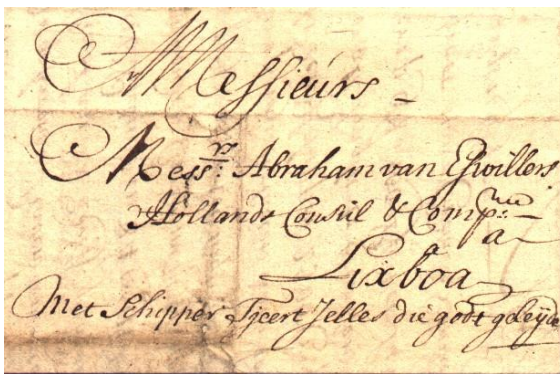 Messieurs
Mess:rs Abraham van Eijwillers
Hollands Consùl & Comp:nie
a
Lixboa
Met Schipper Tjeert Jelles die godt geleijde